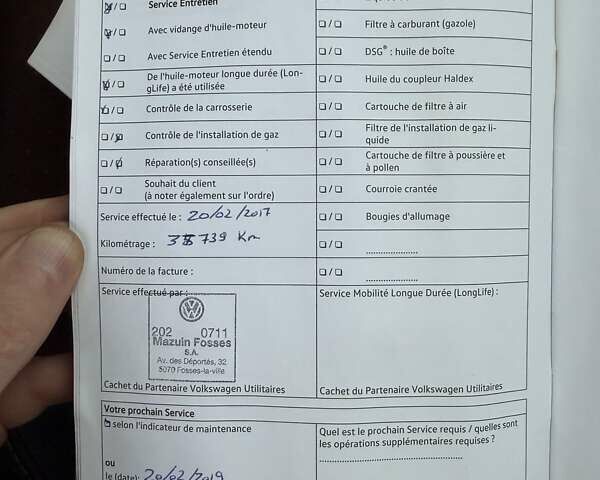 Service Entretien
Avec vidange d'huile-moteur
Filtre à carburant (gazole)
Avec Service Entretien étendu
DSG® : huile de boîte
De l'huile-moteur longue durée (Lon-
gLife) a été utilisée
Huile du coupleur Haldex
Contrôle de la carrosserie
Cartouche de filtre à air
Contrôle de l'installation de gaz
Filtre de l'installation de gaz li-
quide
Réparation(s) conseillée(s)
Cartouche de filtre à poussière et
à pollen
Souhait du client
(à noter également sur l'ordre)
Courroie crantée
Service effectué le : 20/02/2017
Bougies d'allumage
Kilométrage : 739 Km
Numéro de la facture :
Service effectué par :
Service Mobilité Longue Durée (LongLife) :
202 0711
Mazuin Fosses
S.A.
Av. des Déportés, 32
5070 Fosses-la-ville
Cachet du Partenaire Volkswagen Utilitaires
Cachet du Partenaire Volkswagen Utilitaires
Votre prochain Service
selon l'indicateur de maintenance
Quel est le prochain Service requis / quelles sont
les opérations supplémentaires requises ?
ou
le (date): 20/02/2019